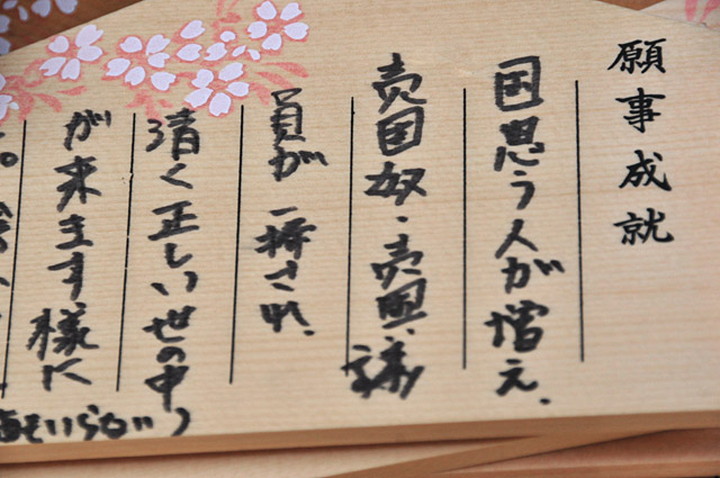 願事成就
国思う人が増え、
売国奴・売国議
員が一掃され、
清く正しい世の中
が来ます様に